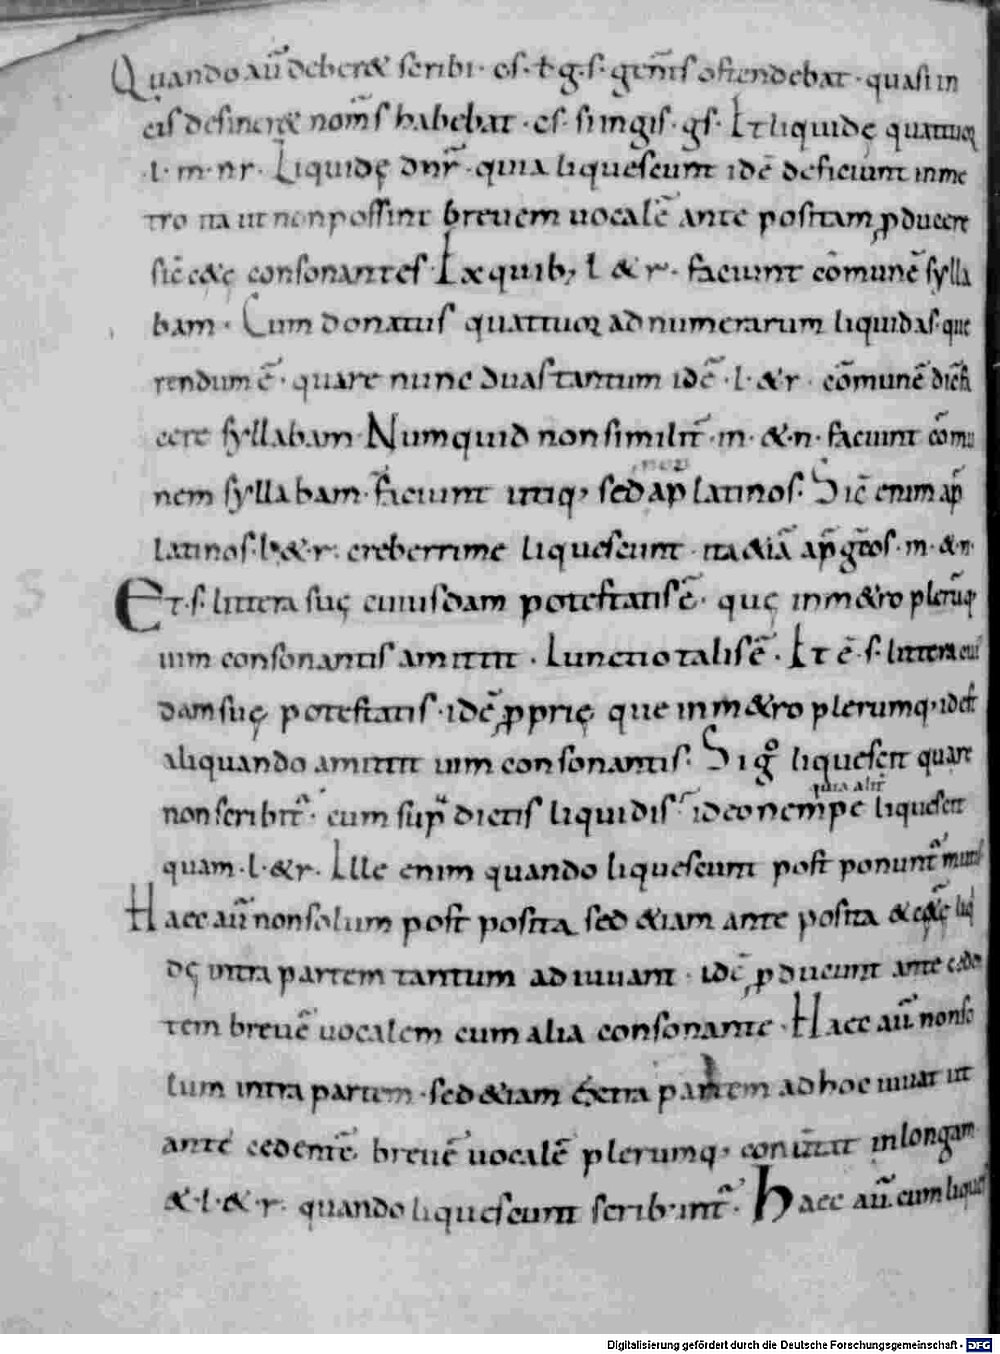 Quando aū deber& scribi · cs · t · g · s · gen̄is ostendebat · quasi in
eis desiner& nom̄s habebat · cs · si ingis · gs · Et liquidę quattuor
· l · m · n r · Liquidę dnr̄ · quia liquescunt idē deficiunt in me
tro ita ut non possint brevem uocalē ante positam ꝓducere
sic̄ c&ę consonantes · Ex quib; l & r · faciunt cōmunē sylla
bam · Cum donatus quattuor adnumerarum liquidas · que
rendum ē · quare nunc duas tantum idē · l · & r · cōmunē
cere syllabam Numquid non similit̄ · m · & · n · faciunt cōmu
nem syllabam · faciunt utiq; sed ap latinos · Sic̄ enim ap̄
latinos · l · & · r · creberrime liquescunt · ita &iā ap̄ gr̄cos · m · & · n ·
Et · s · littera suę cuiusdam potestatis ē · quę in m&ro plerūq;
uim consonantis amittit · Iunctio talis ē · Et ē · s · littera cui
dam suę potestatis · idē ꝓprię que in m&ro plerumq; id est
aliquando amittit uim consonantis · Si gͦ liquescit quare
non scribit̄ · cum sup̄dictis liquidis
quia alit̄
ideo nempe liquescit
quam · l · & r · Ille enim quando liquescunt post ponunt̄
Haec aū non solum post posita sed &iam ante posita & c&ę liq
dę intra partem tantum adiuuant · idē ꝓducunt ante cede
tem breuē uocalem cum alia consonante · Haec aū non so
lum intra partem · sed &iam extra partem ad hoc iuuat ut
ante cedentē breuē uocalē plerumq; conuertat in longam
& · l · & · r · quando liquescunt scrib·unt̄ · Haec aū cum liques
Digitalisierung gefördert durch die Deutsche Forschungsgemeinschaft - DFG